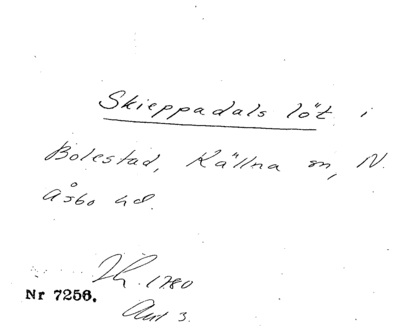 Skieppadals löt i
Bolestad, Källna sn, N.
Åsbo hd.
1780
Nr 7256.
Akt 3.